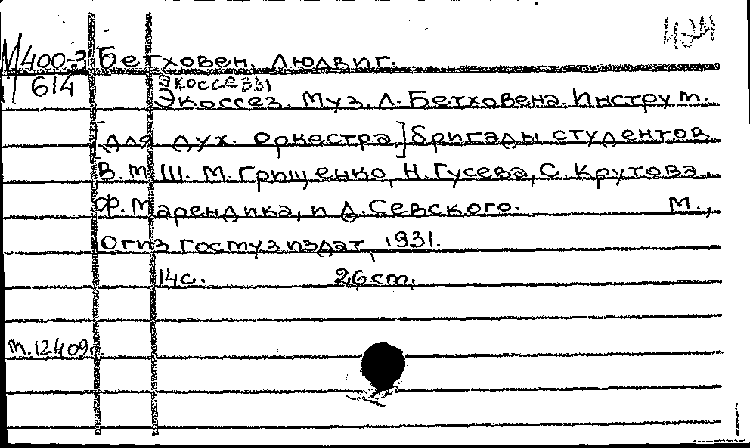 М 400-3 Бетховен, Людвиг.
614 Экоссезы
Экоссез. Муз. Л. Бетховена. Инструм.
[для дух. оркестра] бригады студентов
В.М.Ш. М. Грищенко, Н. Гусева, С. Крутова,
Ф. Марендика, и Д. Севского. М.,
Огиз Госмузиздат, 1931.
14с. 26cm.
т.12409